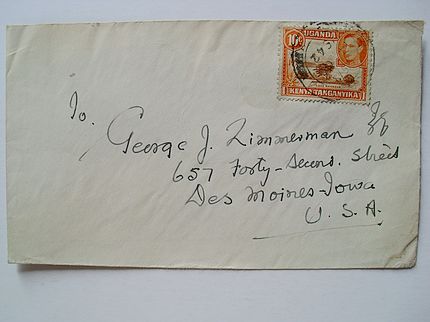 UGANDA
10c
KENYA TANGANYIKA
To.
George J. Zimmerman
657 Forty-Second. Street
Des Moines-Iowa
U.S.A.